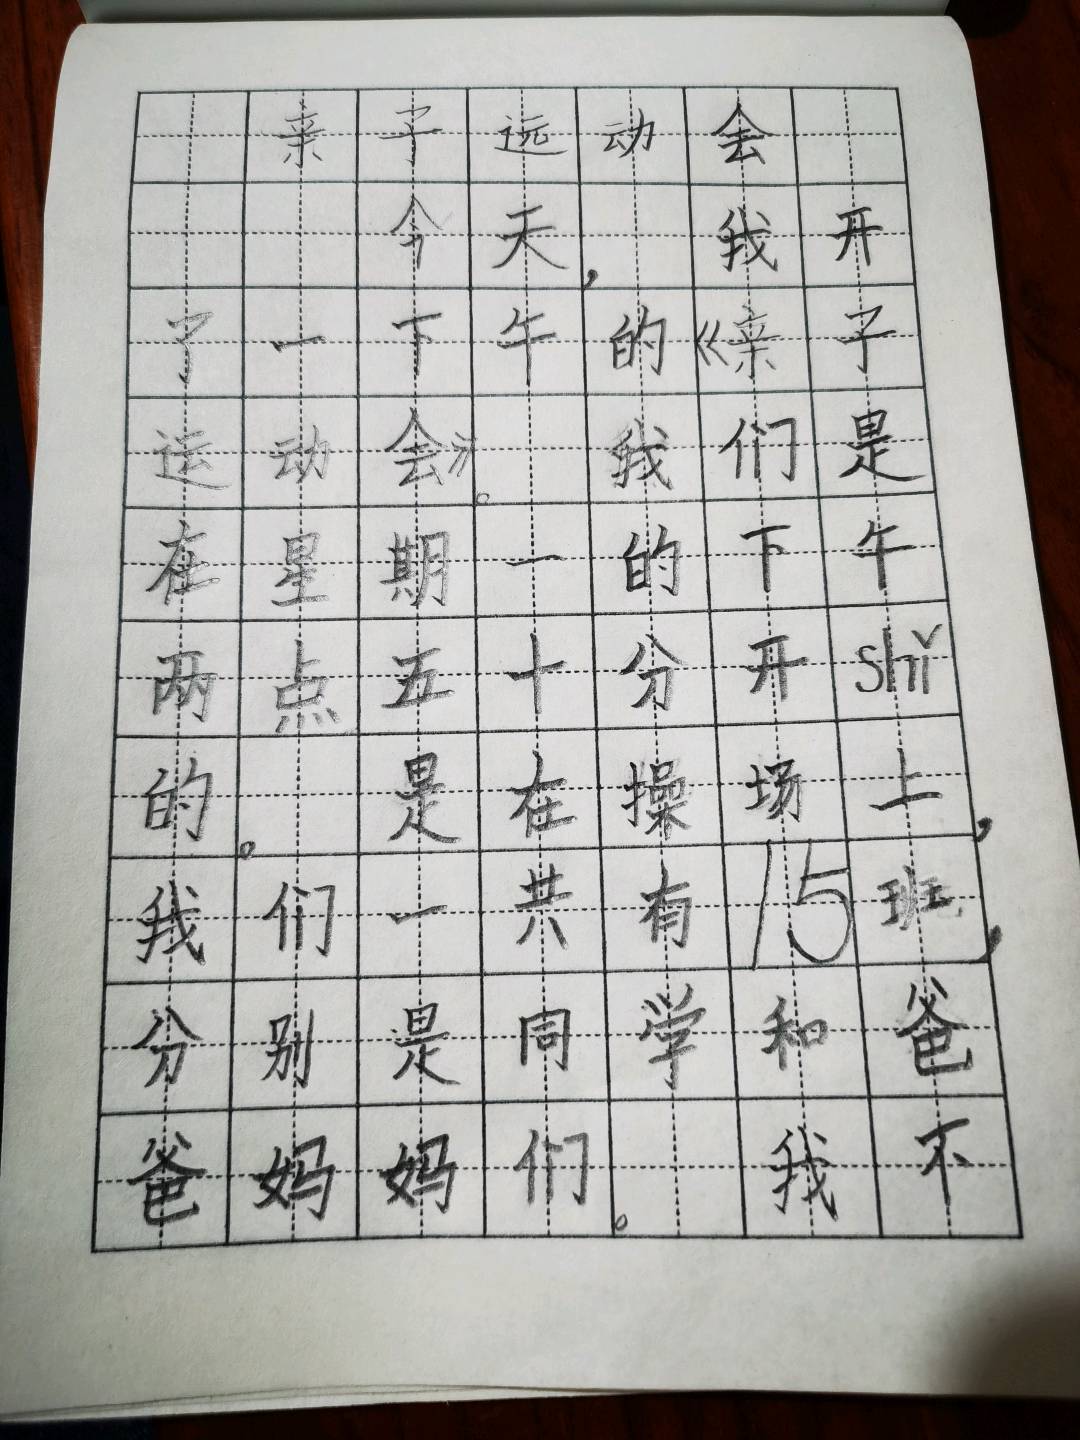 亲子远动会
今天，我开
了一下午的《亲子
运动会》。我们是
在星期一的下午
两点五十分开shǐ
的。是在操场上，
我们一共有15班，
分别是同学和爸
爸妈妈们。我不